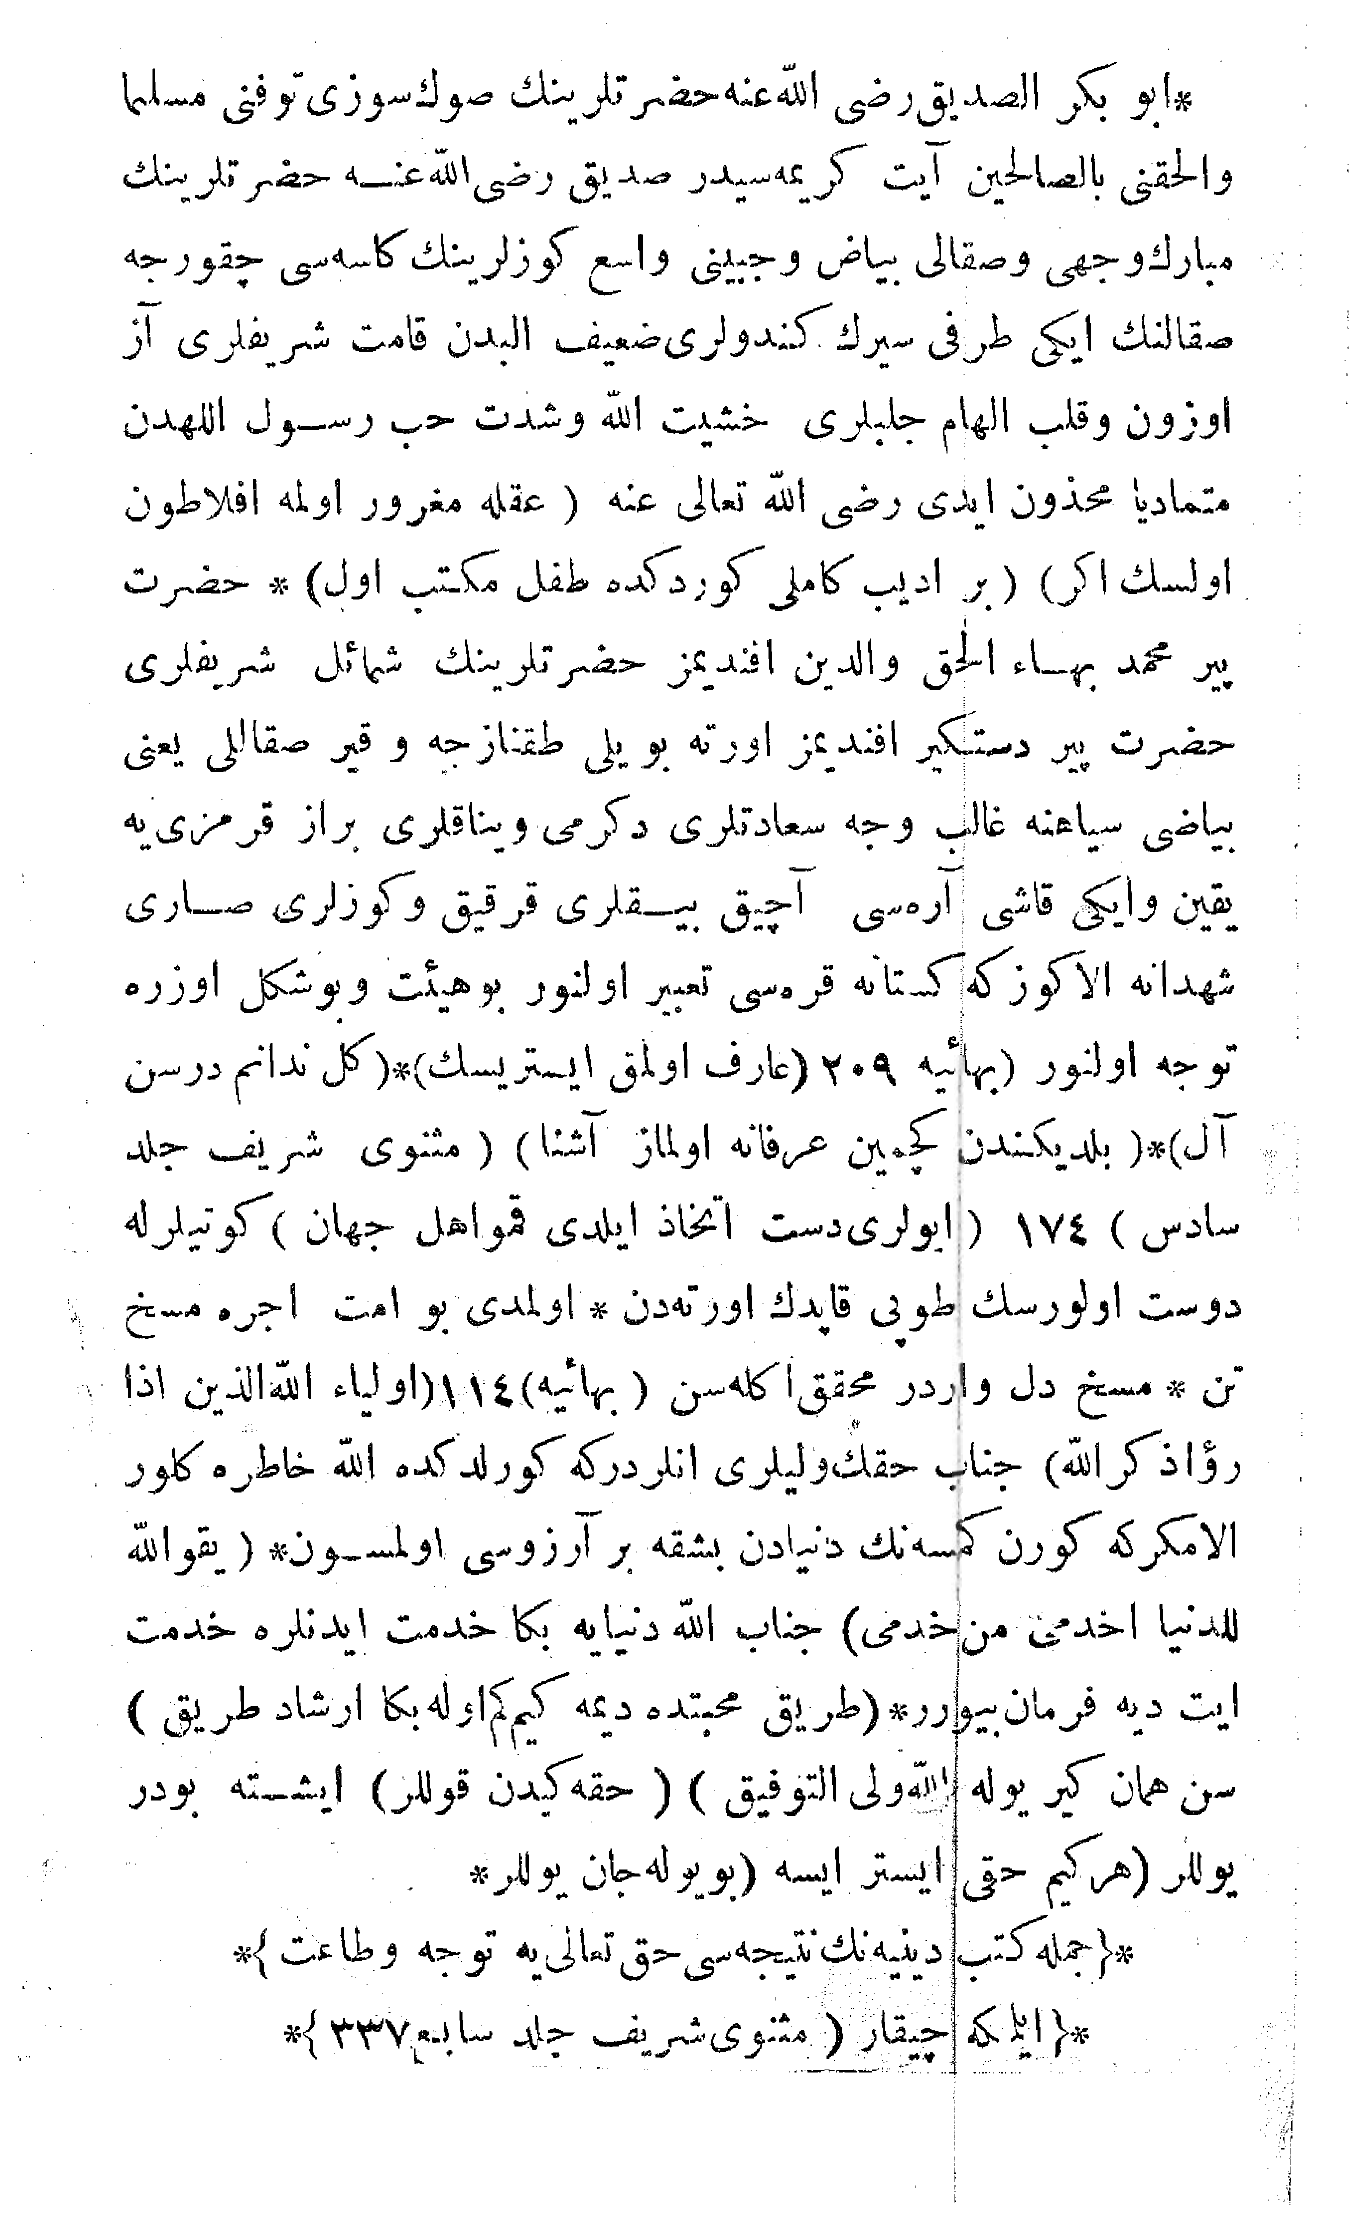 *ابو بكر الصديق رضی الله عنه حضرتلرينك صوك سوزی توفنی مسلما
والحقنی بالصالحين آيت كريمه‌سيدر صديق رضی الله عنـه حضرتلرينك
مبارك وجهی وصقالی بياض وجبينی واسع كوزلرينك كاسه‌سی چقورجه
صقالنك ايكی طرفی سيرك كندولری ضعيف البدن قامت شريفلری آز
اوزون وقلب الهام جلبلری خشيت الله وشدت حب رسـول اللهدن
متماديا محذون ايدی رضی الله تعالی عنه ( عقله مغرور اولمه افلاطون
اولسك اكر) (بر اديب كاملی كوردكده طفل مكتب اول) * حضرت
پير محمد بهـاء الحق والدين افنديمز حضرتلرينك شمائل شريفلری
حضرت پير دستكير افنديمز اورته بويلی طقنازجه و قير صقاللی يعنی
بياضی سياهنه غالب وجه سعادتلری دكرمی ويناقلری براز قرمزی‌يه
يقين وايكی قاشی آره‌سی آچيق بيـقلری قرقيق وكوزلری صـاری
شهدانه الاكوزكه كستانه قره‌سی تعبير اولنور بوهيئت وبوشكل اوزره
توجه اولنور (بهائيه ٢٠٩ (عارف اولمق ايستريسك)*(كل ندانم درسن
آل)*( بلديكندن كچمين عرفانه اولماز آشنا) ( مثنوی شريف جلد
سادس ) ١٧٤ (ابولری دست اتخاذ ايلدی قمو اهل جهان ) كوتيلرله
دوست اولورسك طوپی قاپدك اورته‌دن * اولمدی بو امت اجره مسخ
تن * مسخ دل واردر محقق اكله‌سن ( بهائيه)١١٤(اولياء الله الذين اذا
رؤا ذكر الله) جناب حقك وليلری انلردركه كورلدكده الله خاطره كلور
الا مكركه كورن كمسه‌نك دنيادن بشقه بر آرزوسی اولمسـون* ( يقو الله
للدنيا اخدمی من خدمی) جناب الله دنيايه بكا خدمت ايدنلره خدمت
ايت ديه فرمان بيورر*(طريق محبتده ديمه كيم كم اوله بكا ارشاد طريق )
سن همان كير يوله الله ولی التوفيق ) ( حقه كيدن قوللر) ايشـته بودر
يوللر (هركيم حقی ايستر ايسه (بويوله جان يوللر*
*{جمله كتب دينيه‌نك نتيجه‌سی حق تعالی‌يه توجه وطاعت}*
*{ايلمكه چيقار ( مثنوی شريف جلد سابع ٣٣٧}*